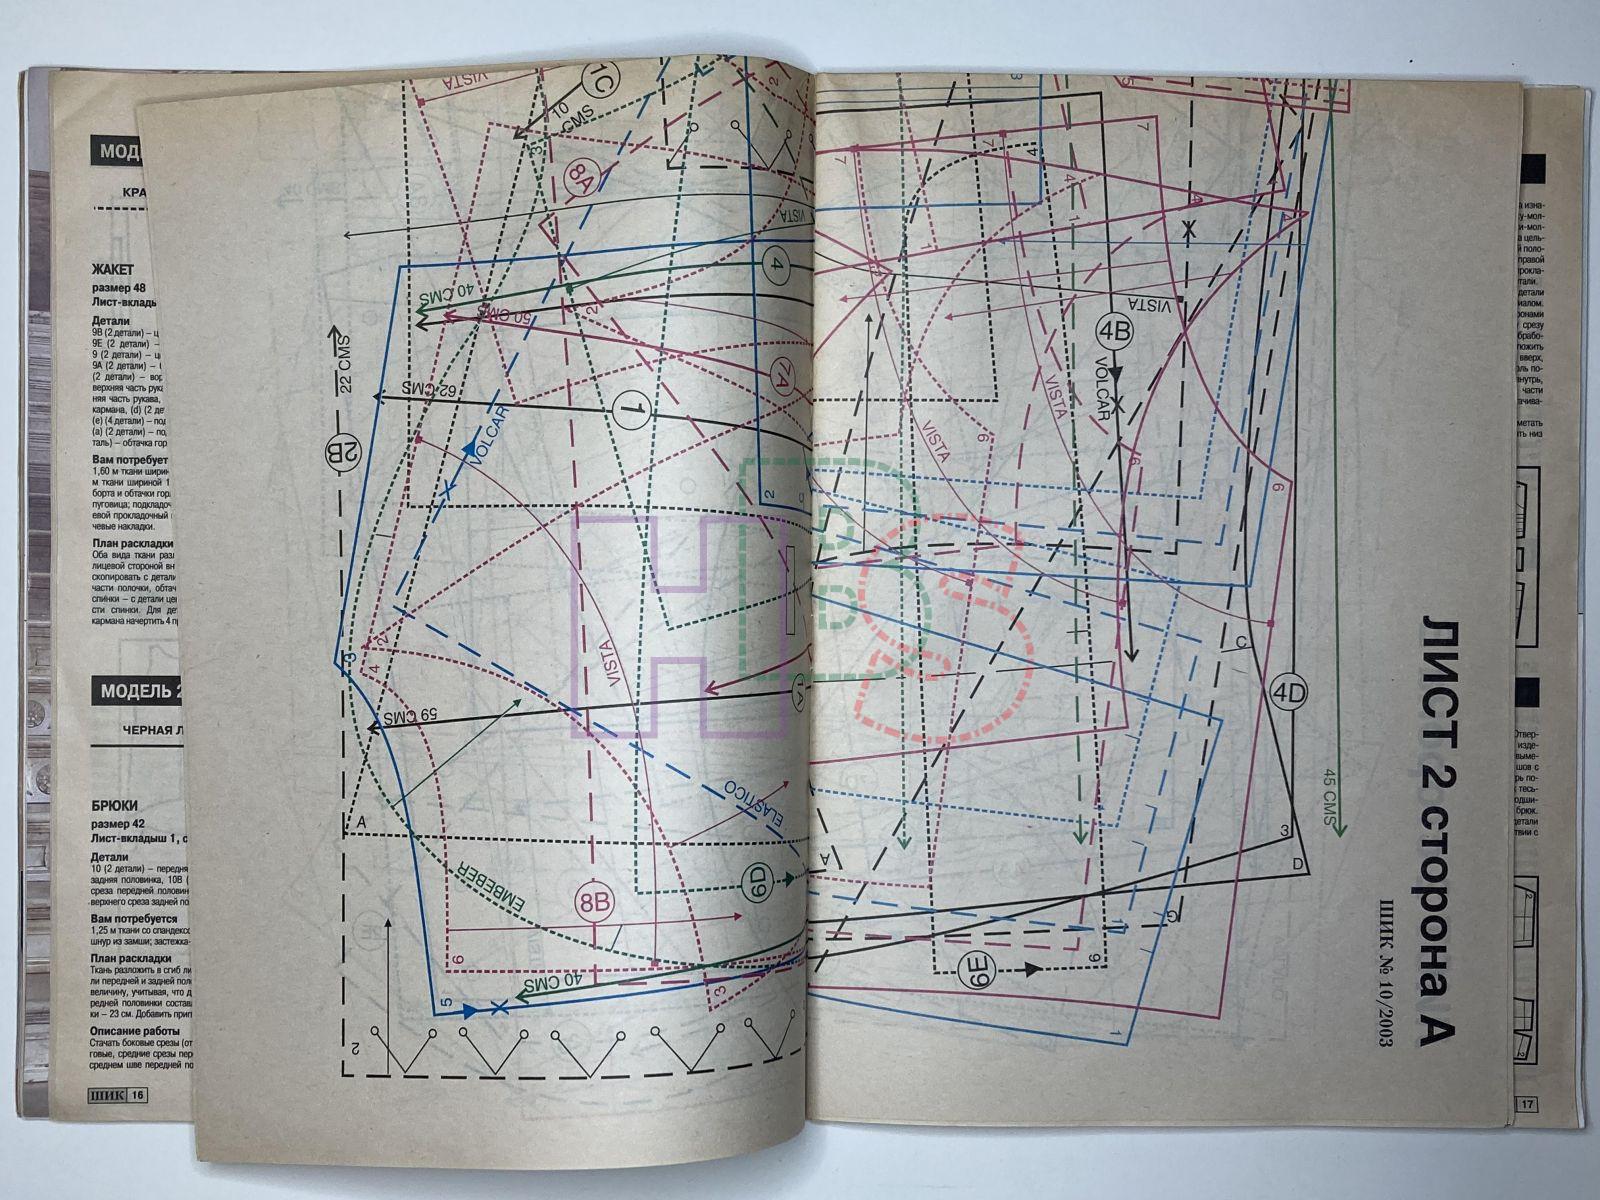 МОД
КРА
ЖАКЕТ
размер 48
Лист-вкладь
Детали
9В (2 детали) – ц
9Е (2 детали) – ц
9 (2 детали) – ц
9А (2 детали) –
(2 детали) – вор
верхняя часть рук
няя часть рукава,
кармана, (d) (2 де
(е) (4 детали) – по
(а) (2 детали) – по
таль) – обтачка гор
Вам потребует
1,60 м ткани ширин
м ткани шириной 1
борта и обтачки гор
пуговица; подкладо
евой прокладочный
чевые накладки.
План раскладки
Оба вида ткани раз
лицевой стороной вн
скопировать с детали
части полочки, обтач
спинки – с детали це
сти спинки. Для де
кармана начертить 4 п
МОДЕЛЬ 2
ЧЕРНАЯ Л
БРЮКИ
размер 42
Лист-вкладыш 1, с
Детали
10 (2 детали) – передня
задняя половинка, 10В (
среза передней половин
верхнего среза задней по
Вам потребуется
1,25 м ткани со спандексо
шнур из замши; застежка-
План раскладки
Ткань разложить в сгиб ли
ли передней и задней пол
величину, учитывая, что д
редней половинки состав
ки – 23 см. Добавить прип
Описание работы
Стачать боковые срезы (от
говые, средние срезы пер
среднем шве передней по
ШИК 16
VISTA
1C
10 CMS
3
8A
2
VISTA
4
40 CMS
50 CMS
2
7A
22 CMS
62 CMS
1
2B
VOLCAR
2
3
2
4
VISTA
1A
59 CMS
A
ELASTICO
EMBEBER
6D
8B
6
40 CMS
3
5
2
7
7
7
4
4
1
1
VISTA
4B
VOLCAR
VISTA
VISTA
6
6
6
C
4D
45 CMS
3
D
A
G
1
6E
6
1
ЛИСТ 2 сторона А
ШИК № 10/2003
H
B
S
изна-
у-мол-
и-мол-
а цель-
й поло-
правой
рокла-
тали.
детали
налом.
ронами
срезу
брабо-
ложить
вверх,
нутрь,
части
ачива-
метать
ть низ
Отвер-
изде-
выме-
шов с
рь по-
тесь-
одши-
брюк.
детали
твии с
17